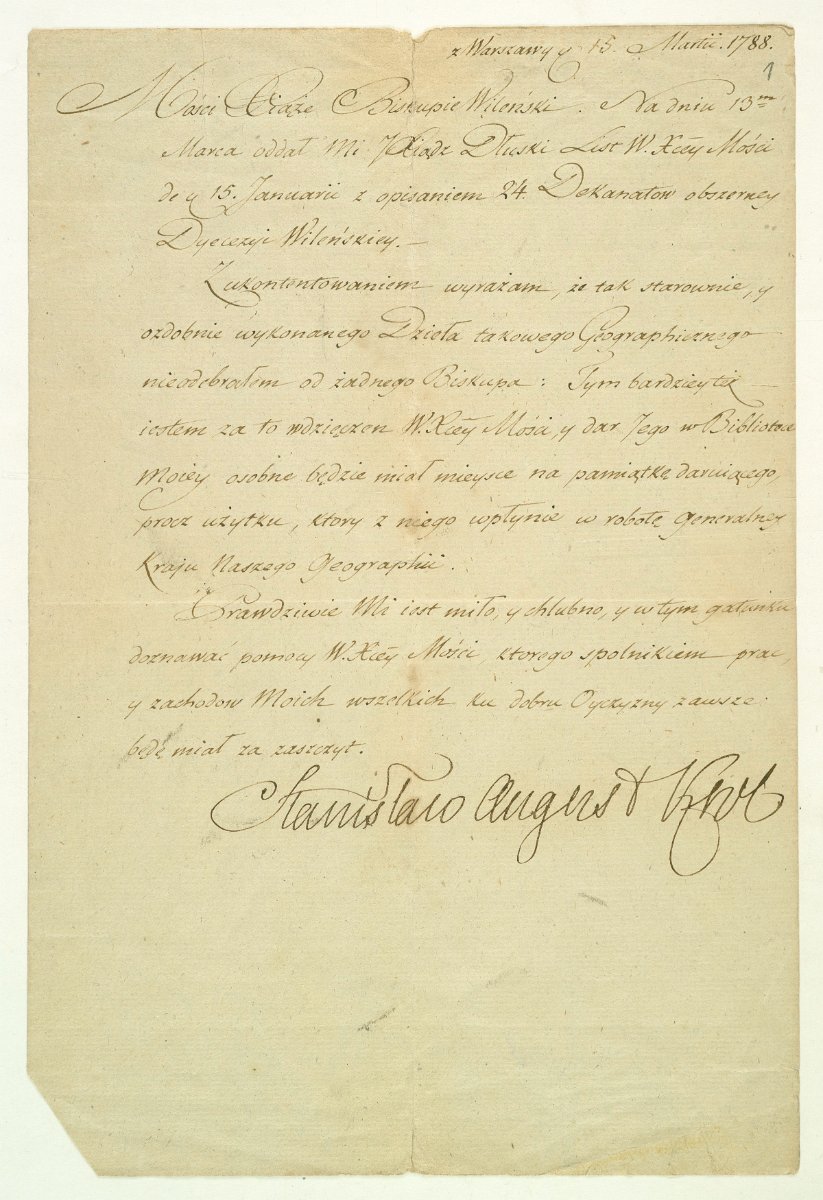 z Warszawy 15. Martii. 1788.
1
Mości Xiąże Biskupie Wileński. Na dniu 13m
Marca oddał Mi JXiądz Dłuski List W. Xcey Mości
de 15. Januarii z opisaniem 24. Dekanatow obszerney
Dyecezyi Wileńskiey.—
Z ukontentowaniem wyrażam, że tak starownie, y
ozdobnie wykonanego Dzieła takowego Geographicznego
nieodebrałem od żadnego Biskupa: Tym bardziey też —
iestem za to wdzięczen W. Xcey Mości, y dar Jego w Bibliotece
Moiey osobne będzie miał mieysce na pamiątkę daruiącego,
procz użytku, ktory z niego wpłynie w robotę generalney
Kraju Naszego Geographii.
Prawdziwie Mi iest miło, y chlubno, y w tym gatunku
doznawać pomocy W. Xcey Mości, ktorego spolnikiem prac,
y zachodow Moich wszelkich ku dobru Oyczyzny zawsze
będę miał za zaszczyt.
Stanisław August Krol